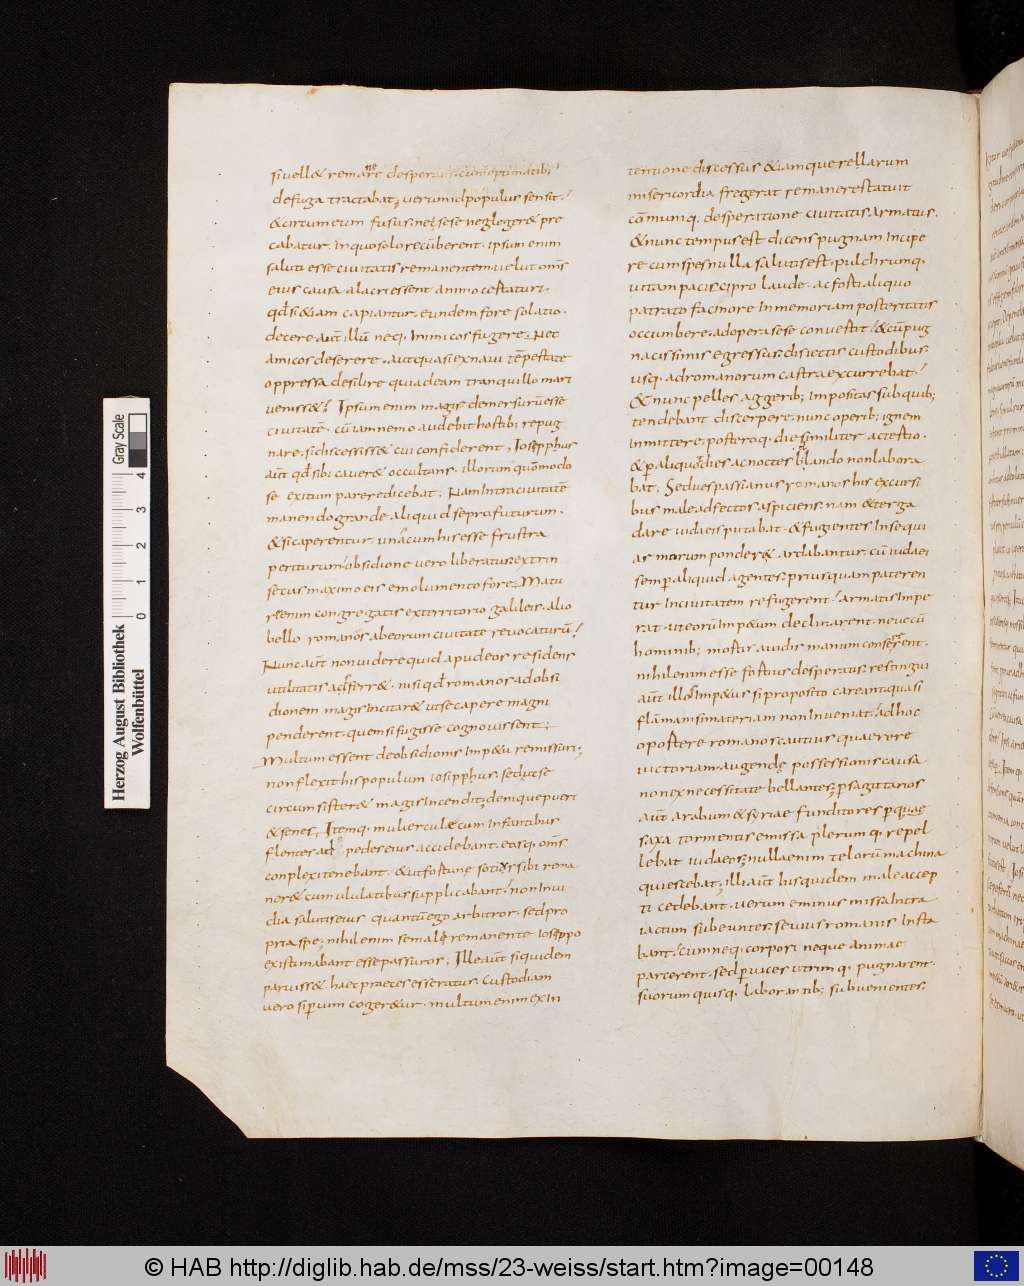 si vell& remare desperans cum optimatib;
de fuga tractabat; uerum id populus sensit.
& circum eum fusus ne sese neglegere pre
cabatur. In quo solo recūberent. ipsum enim
saluti esse ciuitatis remanentem uelut om̄s
eius causa alacri essent animo certaturi.
qđ si & iam capiantur. eundem fore solatio.
decere aut̄ illū neq. Inimicos fugere. Nec
amicos deserere. aut quasi ex naui tēpestate
oppressa desilire quia deam tranquillo mari
ueniss&. Ipsum enim magis demersurū esse
ciuitatē. cū iam nemo audebit hostib; repug
nare. si discessiss& cui confiderent. Iosepphus
aut̄ qđ sibi cauer& occultans. illorum quōmodo
se exitum parere dicebat. Nam Intra ciuitatē
manendo grande aliquid se profuturum.
& si caperentur. una cum his esse frustra
periturum. obsidione uero liberatus extrin
secus maximo eis emolumento fore. Matu
re enim congregatis ex territorio galileis. alio
bello romanos ab eorum ciuitate reuocaturū.
Nunc aut̄ non uidere quid apud eos residens
utilitatis adferr&. nisi qđ romanos ad obsi
dionem magis Incitar& ut se capere magni
penderent. quem si fugisse cognouissent;
Multum essent de obsidionis Imp&u remissuri;
non flexit his populum iosipphus. sed ut se
circumsister& magis Incendit. denique pueri
& senes. Itemq. mulierculę cum Infantibus
flentes ad pedes eius accidebant. easq. om̄s
conplexi tenebant. & ut fortunę sotius sibi rema
ner& cum ululatibus supplicabant. non Inui
dia salutis eius quantū ego arbitror. sed pro
pria spe; nihil enim se mali remanente iosippo
existimabant esse passuros; Ille aut̄ si quidem
paruiss& haec praeces esse ratus. Custodiam
uero si p̄uium coger&ur. multum enim ex In
tentione discessus & iam querellarum
misericordia fregerat remanere statuit
cōmuniq. desperatione ciuitatis armatus.
& nunc tempus est dicens pugnam Incipe
re cum spes nulla salutis est. pulchrumq.
uitam paciscí pro laude. ac forti aliquo
patrato facinore In memoriam posteritatis
occumbere. ad opera sese conuertit. & cū pug
nacissimis egressus. disiectis custodibus.
usq. ad romanorum castra excurrebat.
& nunc pelles aggerib; Impositas sub quib;
tendebant discerpere. nunc operib; ignem
Inmittere. posteroq. die similiter ac tertio.
& p aliquot dies ac noctes bellando non labora
bat. Sed uespassianus romanos his excursi
bus male adfectos aspiciens. nam & terga
dare iudaeis putabat. & fugientes Insequi
armorum ponder& ardibantur. cū iudaei
semp aliquid agentes. prius quam pateren
tur In ciuitatem refugerent. armatis Impe
rat. ut eorū Imp&um declinarent. neue cū
hominib; mortis auidis manum consererent.
nihil enim esse fortius desperatis. restingui
aut̄ illos Imp&us si proposito careant quasi
flāma si materiam non Inueniat. ad hoc
oportere romanos cautius quaerere
uictoriam. augendę possessionis causa
non ex necessitate bellantes; p sagittarios
aut̄ arabum & syriae funditores p quae
saxa tormentis emissa plerumq. repel
lebat iudaeos; nulla enim telorū machina
quiescebat; illi aut̄ his quidem male accep
ti cedebant. uerum eminus missa Intra
iactum subeuntes. seuius romanis Insta
bant. cum neq. corpori neque animae
parcerent. sed p uices utrimq. pugnarent.
suorum quisq. laborantib; subuenientes.
Herzog August Bibliothek
Wolfenbüttel
0 1 2 3 4
Gray Scale
© HAB http://diglib.hab.de/mss/23-weiss/start.htm?image=00148